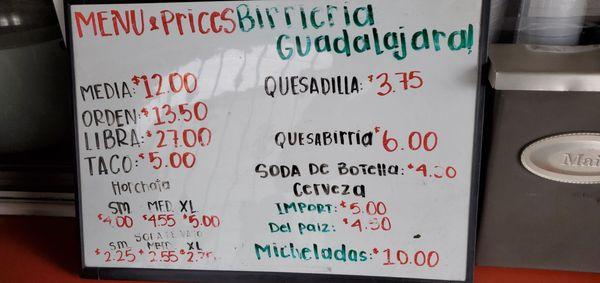 MENU & Prices Birrieria
Guadalajara!
MEDIA: $12.00
ORDEN: $13.50
LIBRA: $27.00
TACO: $5.00
Horchata
SM MED. XL
$4.00 $4.55 $5.00
SM MED XL
$2.25 $2.55 $2.75
QUESADILLA: $3.75
QUESABIRRIA $6.00
SODA DE BOTELLA: $4.50
Cerveza
IMPORT: $5.00
Del paiz: $4.50
Micheladas: $10.00
Mai